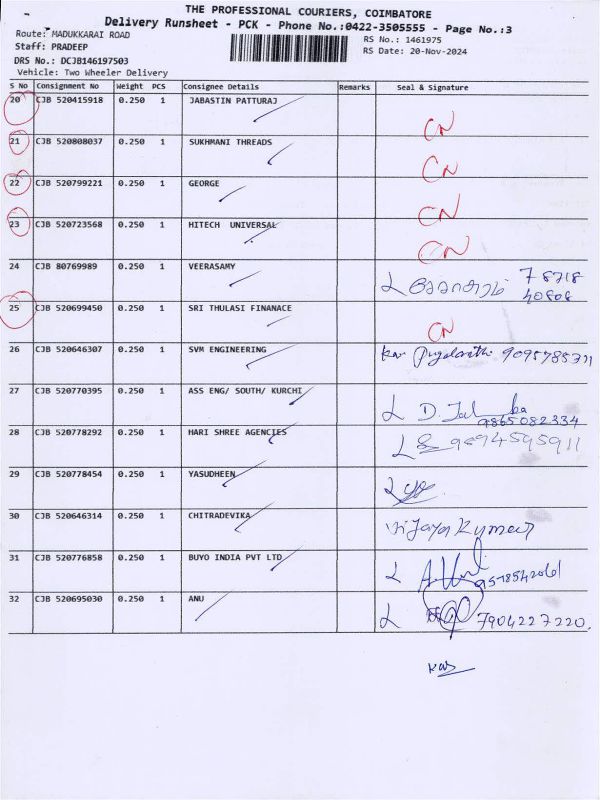 THE PROFESSIONAL COURIERS, COIMBATORE
Delivery Runsheet - PCK - Phone No.:0422-3505555 - Page No.:3
Route: MADUKKARAI ROAD
RS No.: 1461975
Staff: PRADEEP
RS Date: 20-Nov-2024
DRS No.: DCJB146197503
Vehicle: Two Wheeler Delivery
S No Consignment No Weight PCS Consignee Details Remarks Seal & Signature
20 CJB 520415918 0.250 1 JABASTIN PATTURAJ CN
21 CJB 520808037 0.250 1 SUKHMANI THREADS CN
22 CJB 520799221 0.250 1 GEORGE CN
23 CJB 520723568 0.250 1 HITECH UNIVERSAL CN
24 CJB 80769989 0.250 1 VEERASAMY 78718
40808
25 CJB 520699450 0.250 1 SRI THULASI FINANACE CN
26 CJB 520646307 0.250 1 SVM ENGINEERING 9095785311
27 CJB 520770395 0.250 1 ASS ENG/ SOUTH/ KURCHI D.
9865082334
28 CJB 520778292 0.250 1 HARI SHREE AGENCIES 9894595911
29 CJB 520778454 0.250 1 YASUDHEEN
30 CJB 520646314 0.250 1 CHITRADEVIKA Vijaya Kumar
31 CJB 520776858 0.250 1 BUYO INDIA PVT LTD 9578542061
32 CJB 520695030 0.250 1 ANU 7904227220.